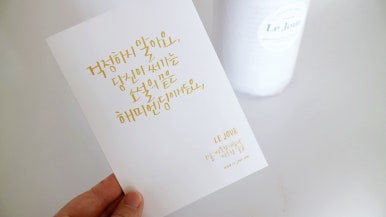 걱정하지 말아요,
당신이 써가는
소설의 끝은
해피엔딩이에요,
LE JOUR
Le Jour